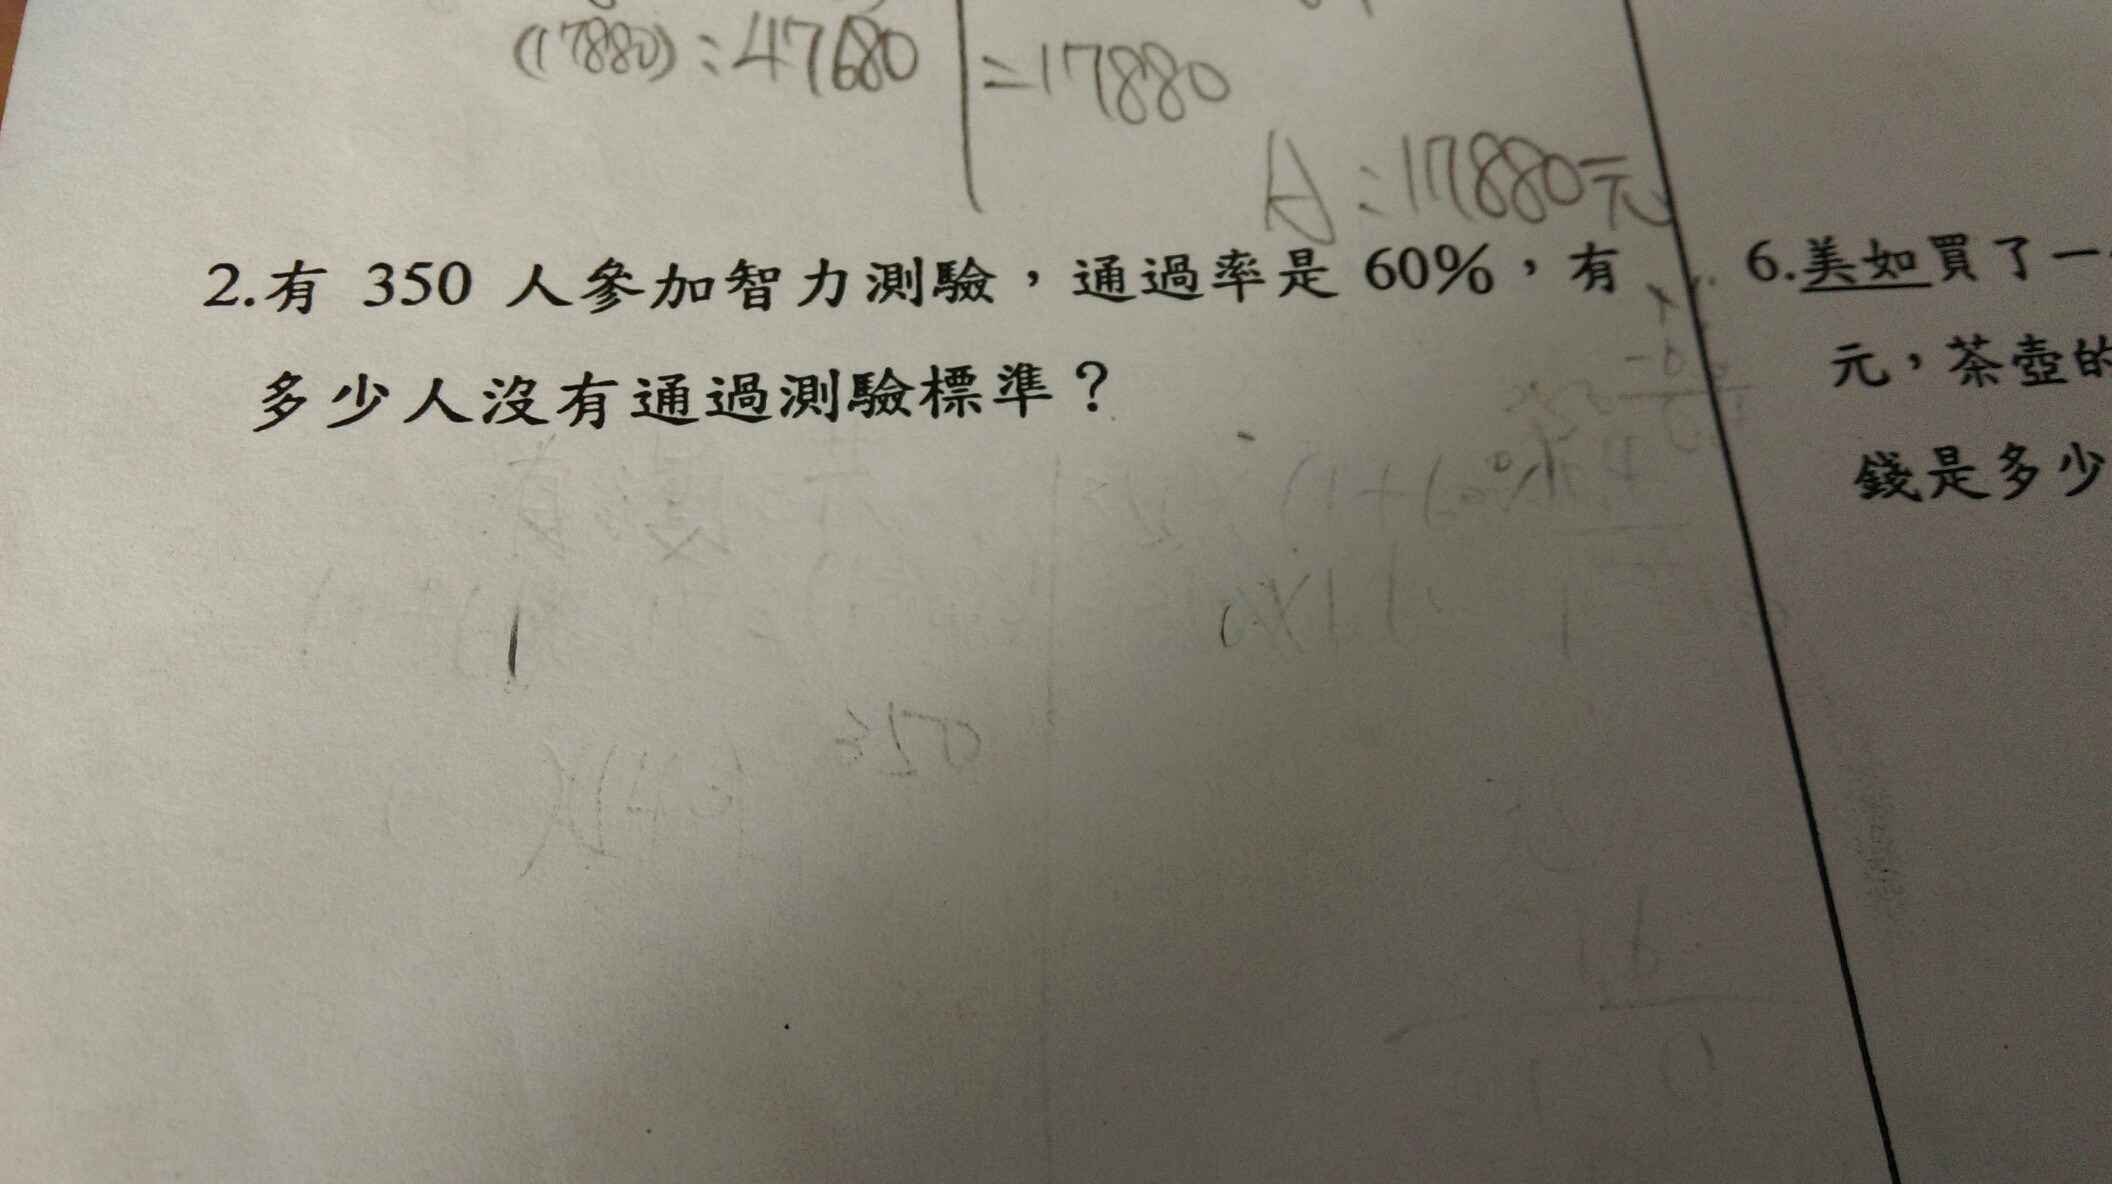 (17880):47680
=17880
A:17880元
2.有 350 人參加智力測驗，通過率是 60%，有
多少人沒有通過測驗標準？
6.美如買了一
元，茶壺的
錢是多少